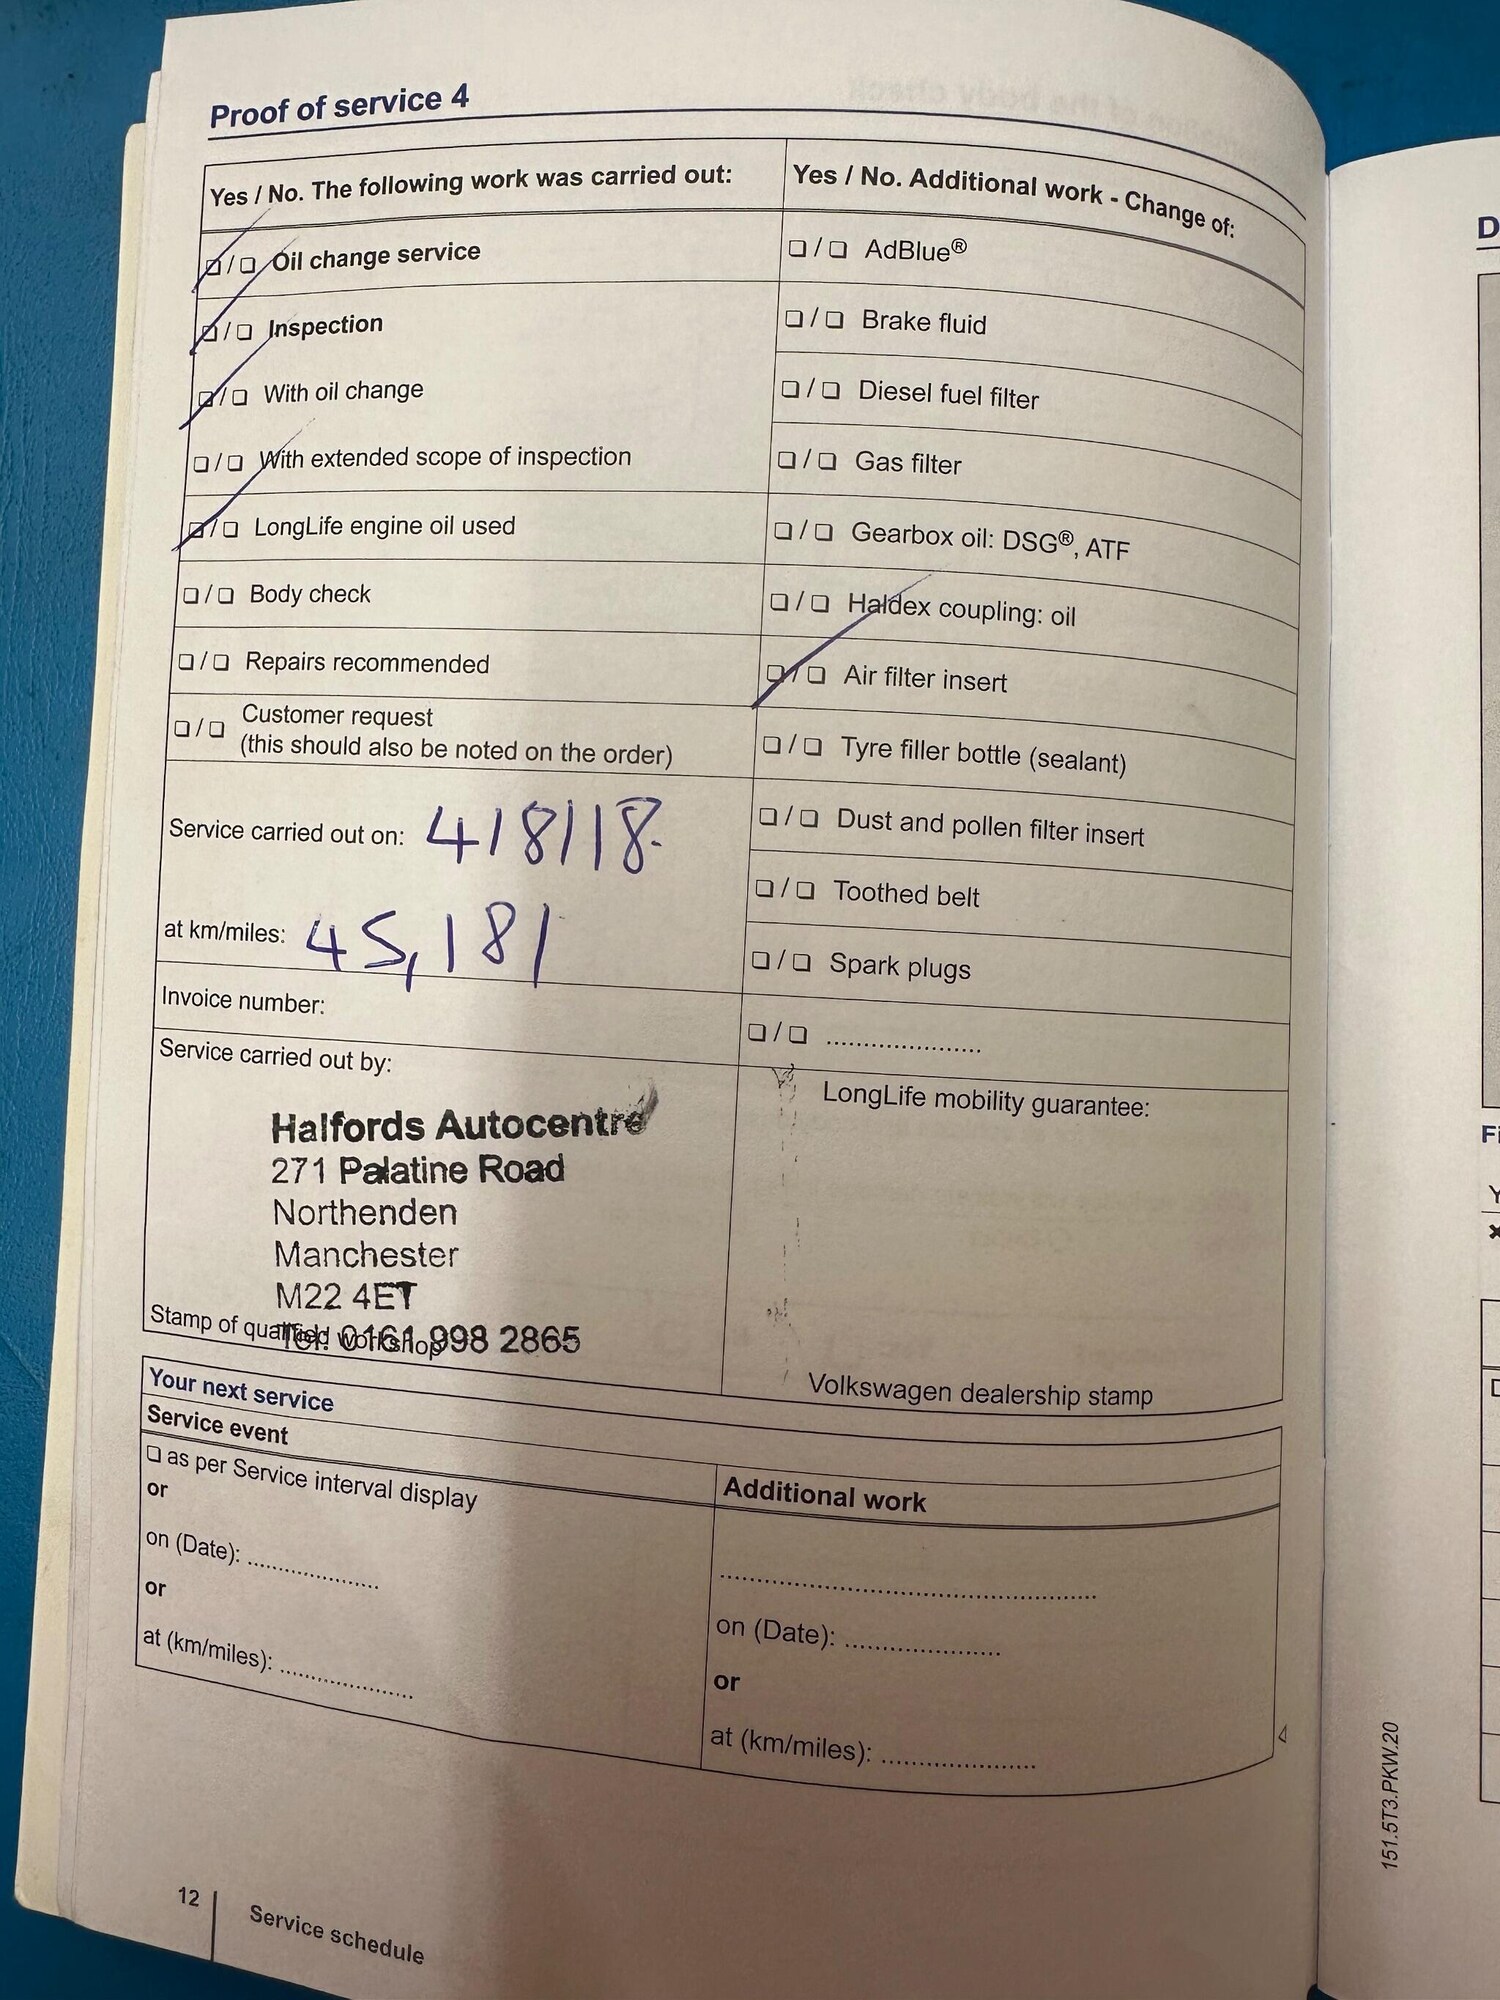 Proof of service 4
Yes / No. The following work was carried out:
❏ / ❏ Oil change service
❏ / ❏ Inspection
❏ / ❏ With oil change
❏ / ❏ With extended scope of inspection
❏ / ❏ LongLife engine oil used
❏ / ❏ Body check
❏ / ❏ Repairs recommended
❏ / ❏ Customer request
(this should also be noted on the order)
Service carried out on: 4/8/18.
at km/miles: 45,181
Invoice number:
Service carried out by:
Halfords Autocentre
271 Palatine Road
Northenden
Manchester
M22 4ET
Tel: 0161 998 2865
Stamp of qualified workshop
Yes / No. Additional work - Change of:
❏ / ❏ AdBlue®
❏ / ❏ Brake fluid
❏ / ❏ Diesel fuel filter
❏ / ❏ Gas filter
❏ / ❏ Gearbox oil: DSG®, ATF
❏ / ❏ Haldex coupling: oil
❏ / ❏ Air filter insert
❏ / ❏ Tyre filler bottle (sealant)
❏ / ❏ Dust and pollen filter insert
❏ / ❏ Toothed belt
❏ / ❏ Spark plugs
❏ / ❏ .....................
LongLife mobility guarantee:
Volkswagen dealership stamp
Your next service
Service event
❏ as per Service interval display
or
on (Date): ..................
or
at (km/miles): ..................
Additional work
..................................................
on (Date): .....................
or
at (km/miles): .....................
12
Service schedule
151.5T3.PKW.20